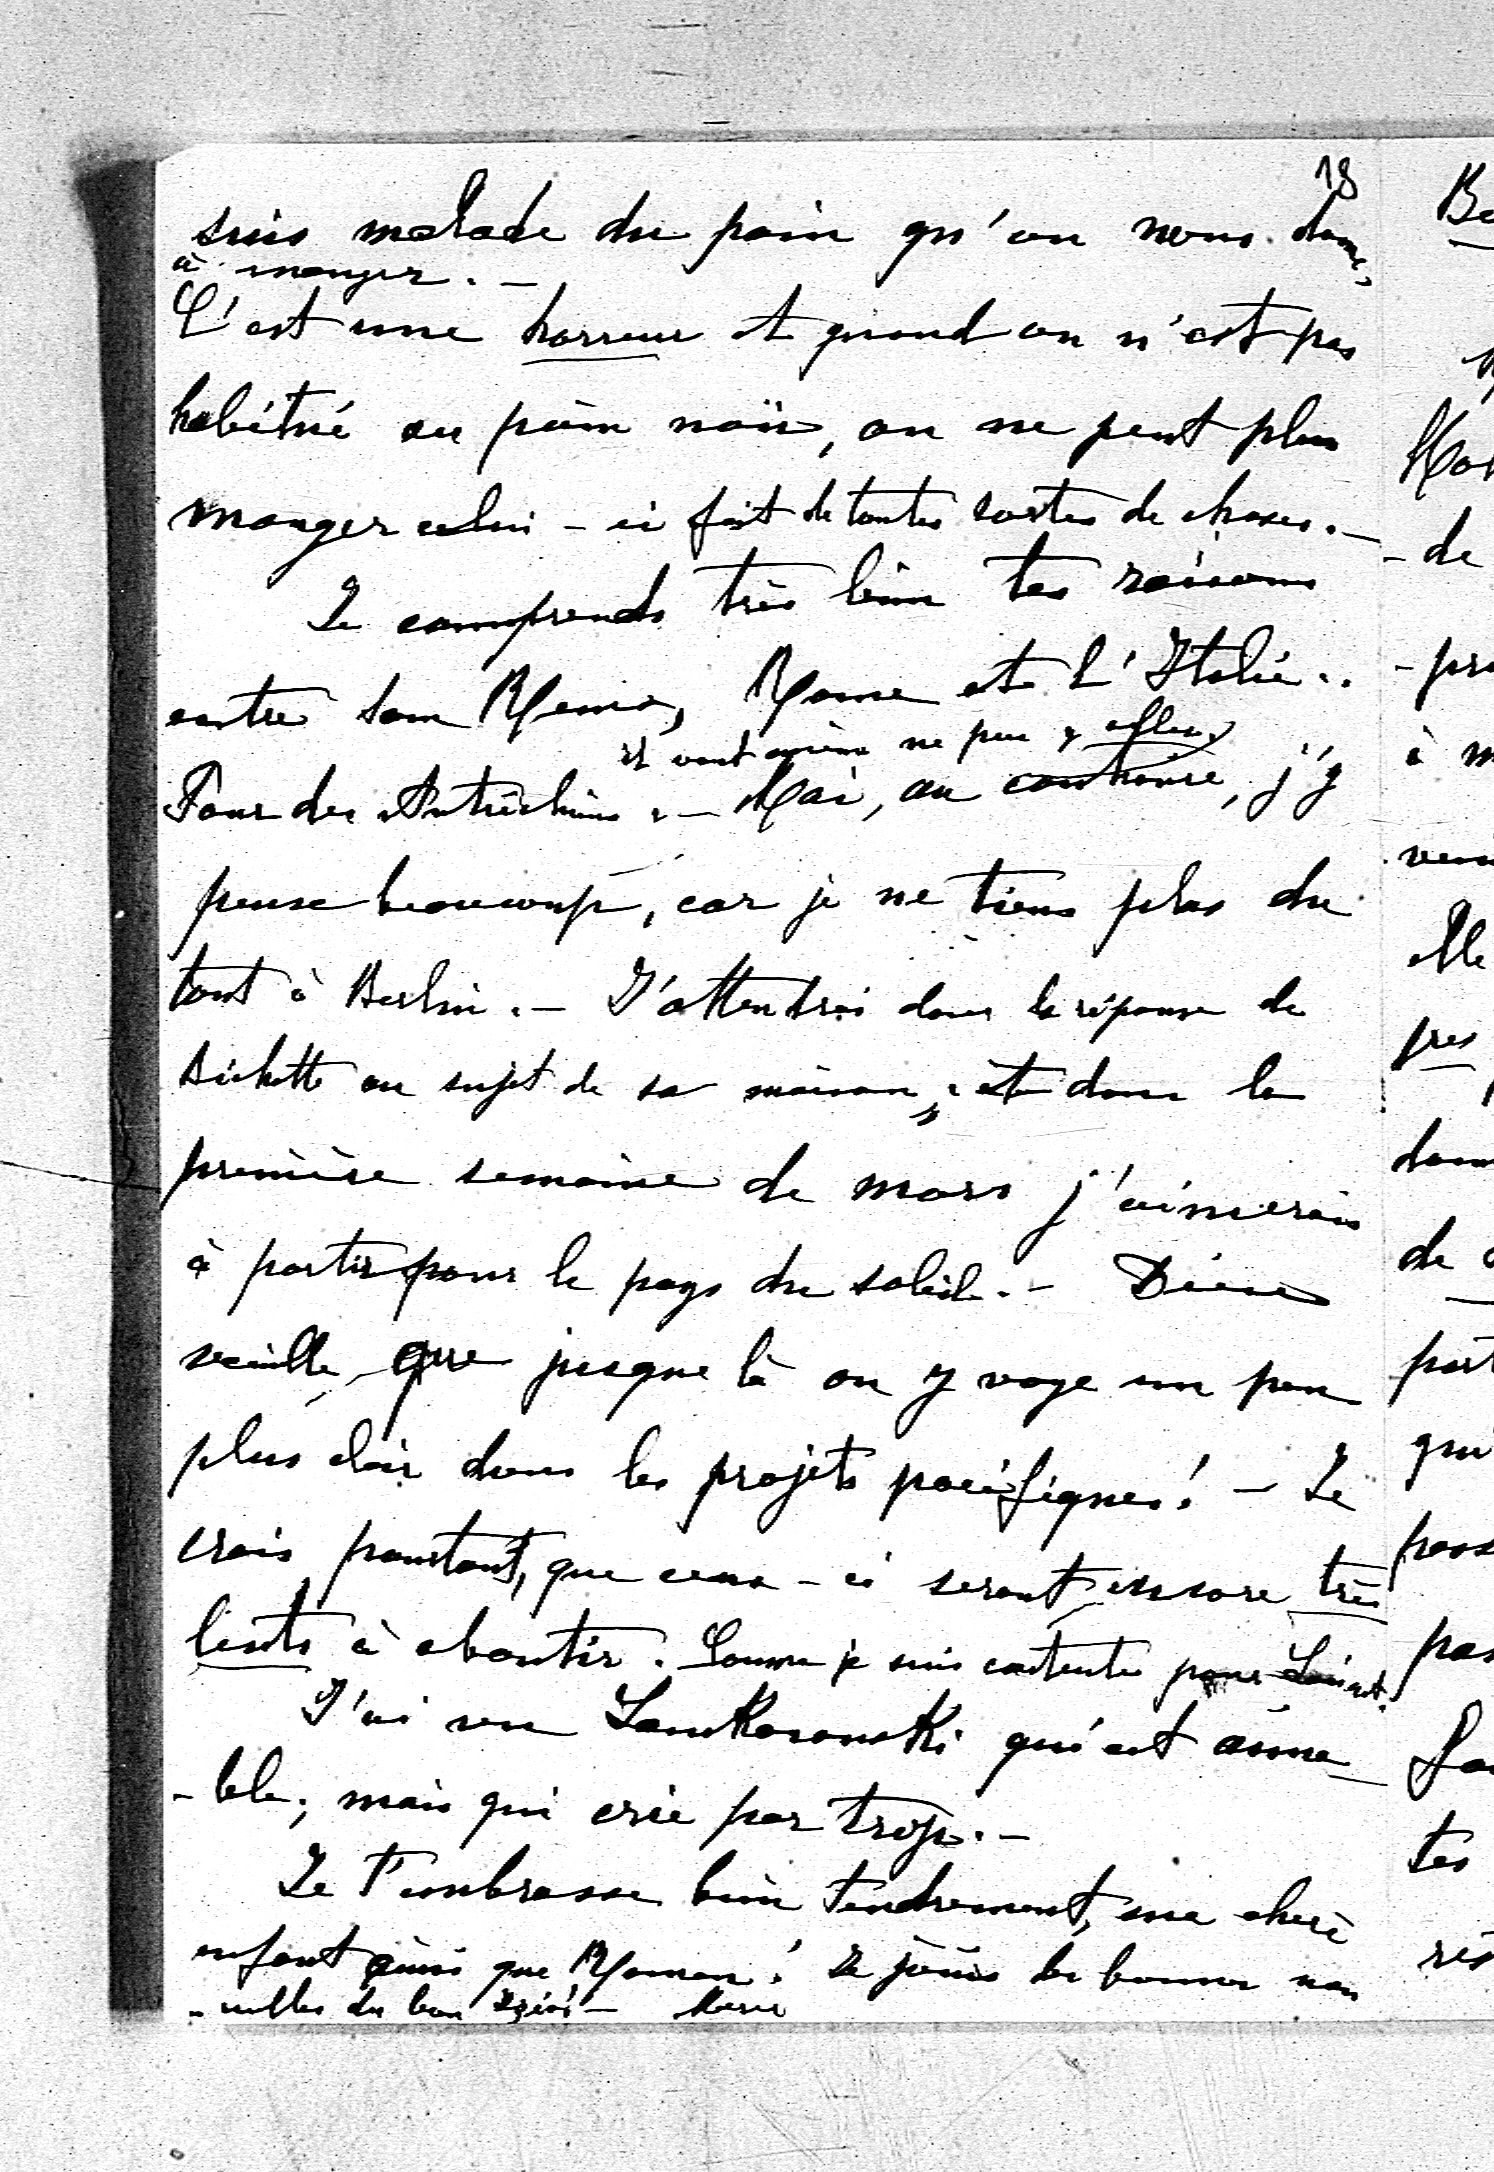 18
suis malade du pain qu'on nous donne
à manger. —
C'est une horreur et quand on n'est pas
habitué au pain noir, on ne peut plus
manger celui-ci fait de toutes sortes de choses. —
Je comprends très bien tes raisons
entre Rome et l'Italie..
il vaut mieux ne pas y aller
Pour des Autrichiens. — Moi, au contraire, j'y
pense beaucoup, car je ne tiens plus du
tout à Berlin. — J'attendrai donc la réponse de
Bichette au sujet de sa maison, et dans la
première semaine de mars j'aimerais
à partir pour le pays du soleil. — Dieu
veuille, que jusque là on y voye un peu
plus clair dans les projets pacifiques! — Je
crois pourtant, que ceux-ci seront encore très
lents à aboutir. Comme je suis contente pour
J'ai vu Lanskoronski qui est aima
-ble, mais qui crie par trop. —
Je t'embrasse bien tendrement, ma chère
enfant ainsi que Roman! Je jouis des bonnes nou
-velles du bon — Marie
Be
- de
- pr
à m
elle
pres
de
part
qui
pas
tes